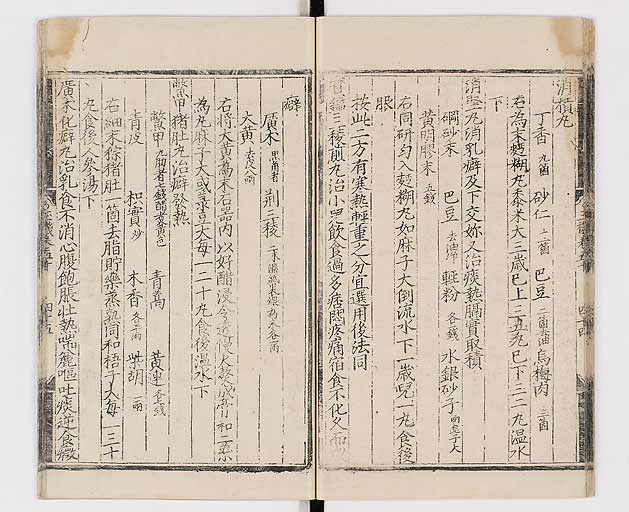 消積丸
丁香 九箇 砂仁 十二箇 巴豆 二箇去油 烏梅肉 三箇
右為末麵糊丸黍米大三歲已上三五丸已下三二丸温水
下
消堅丸消乳癖及下交妳又治痰熱膈實取積
硇砂末 巴豆 去油 輕粉 各一錢 水銀砂子 兩皂子大
黄明膠末 五錢
右同研勻入麵糊丸如麻子大倒流水下一歲兒一丸食後
服
按此二方有寒熱輕重之分宜選用後法同
三稜煎丸治小兒飲食過多痞悶疼痛宿食不化久而
癖
廣朮 黑角者 荆三稜
大黄 去皮八兩
右將大黄為末石器內以好醋漫令過慢火熬成膏和二藥
為丸麻子大或綠豆大每一二十丸食後温水下
鱉甲猪肚丸治癖發熱
鱉甲 九肋者七錢醋炙黄色
青皮 枳實 炒 木香 青蒿 黄連 各七錢 柴胡 一兩
右細末猪肚一箇去脂貯藥蒸熟同和梧子大每一二十
丸食後人參湯下
廣朮化癖丸治乳食不消心腹飽脹壮熱喘麄嘔吐痰逆食癥